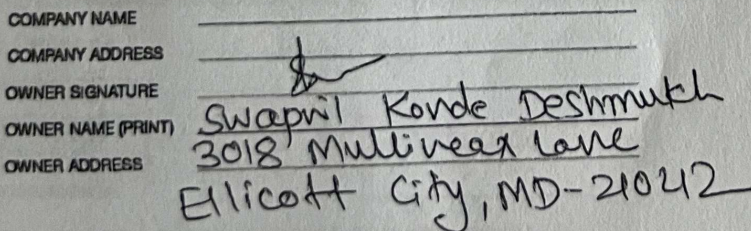 COMPANY NAME
COMPANY ADDRESS
OWNER SIGNATURE
OWNER NAME (PRINT) Swapnil Konde Deshmukh
OWNER ADDRESS 3018 Mullineax Lane
Ellicott City, MD-21042